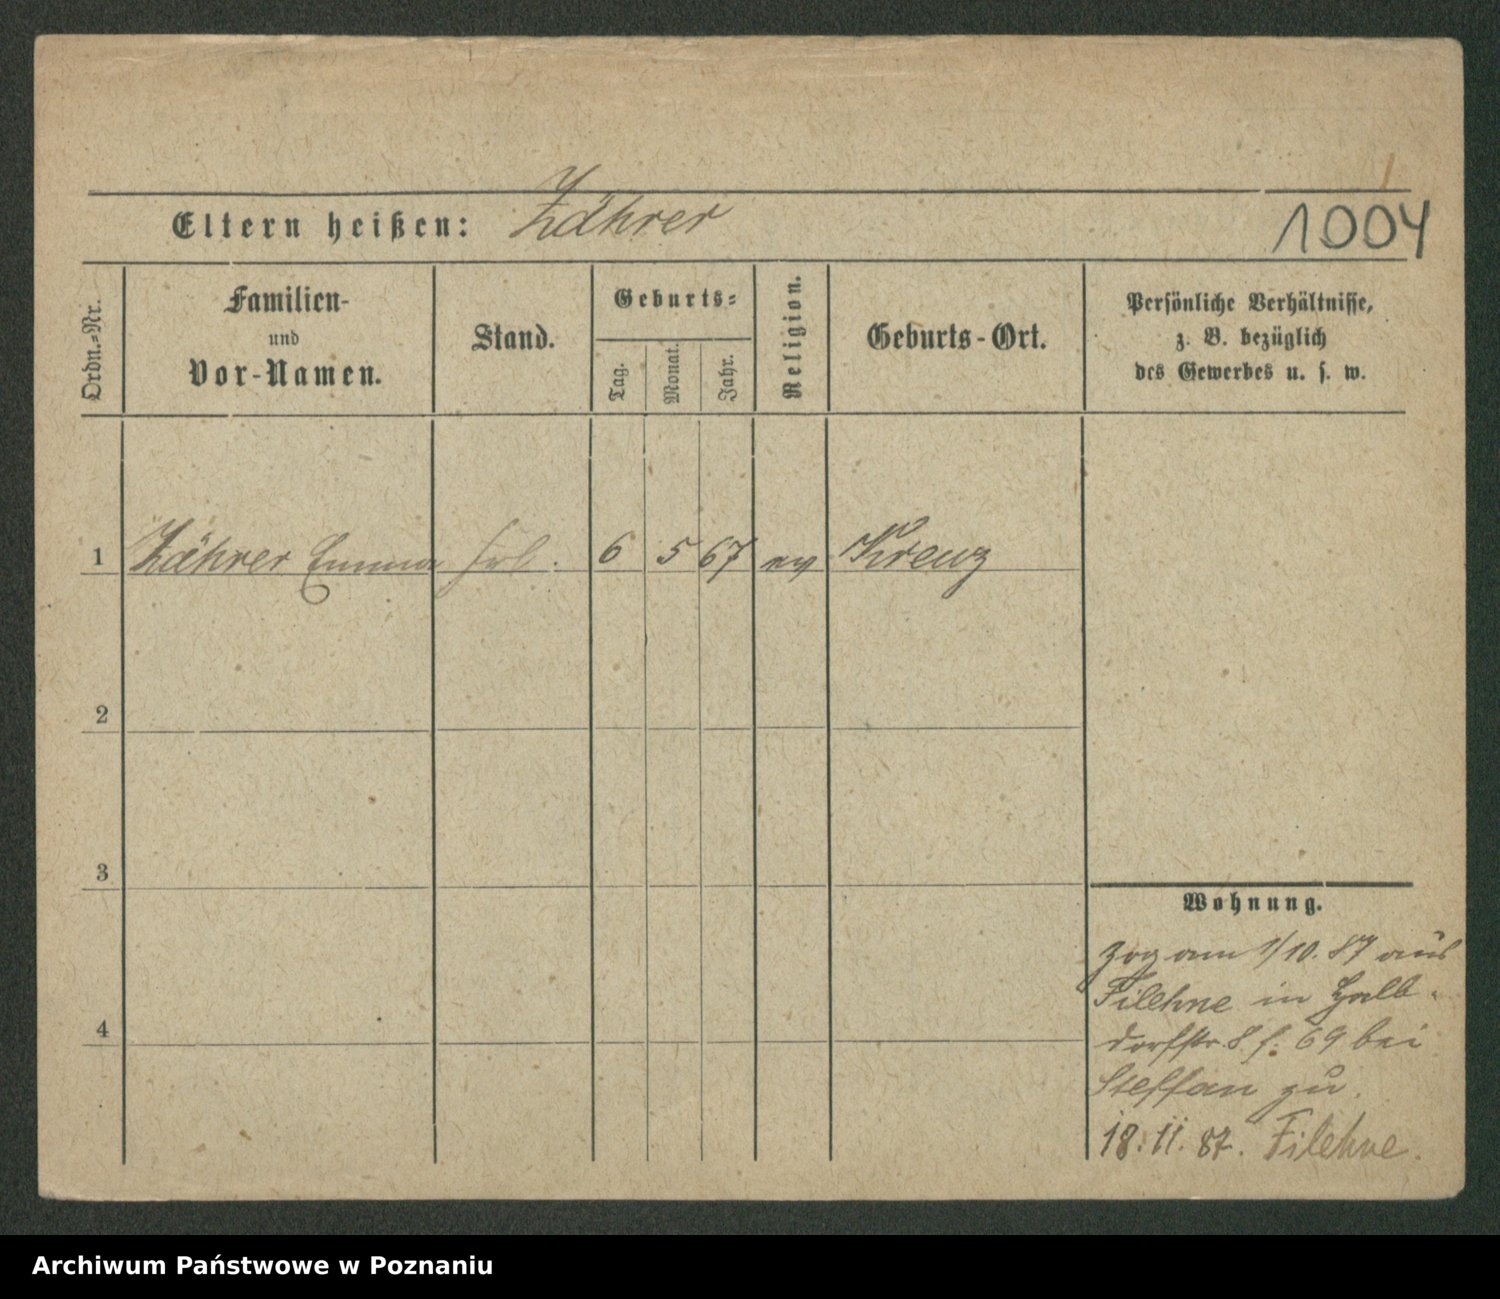 Eltern heißen: Zährer
1004
Ordn.-Nr.
Familien-
und
Vor-Namen.
Stand.
Geburts-
Tag.
Monat.
Jahr.
Religion.
Geburts-Ort.
Persönliche Verhältnisse,
z. B. bezüglich
des Gewerbes u. s. w.
1 Zährer Emma frl. 6 5 67 ev Kreuz
2
3
4
Wohnung.
zog am 1/10. 87 aus
Filehne in Halb-
dorfstr. 8 f. 69 bei
Steffan zu.
18. 11. 87. Filehne.
Archiwum Państwowe w Poznaniu